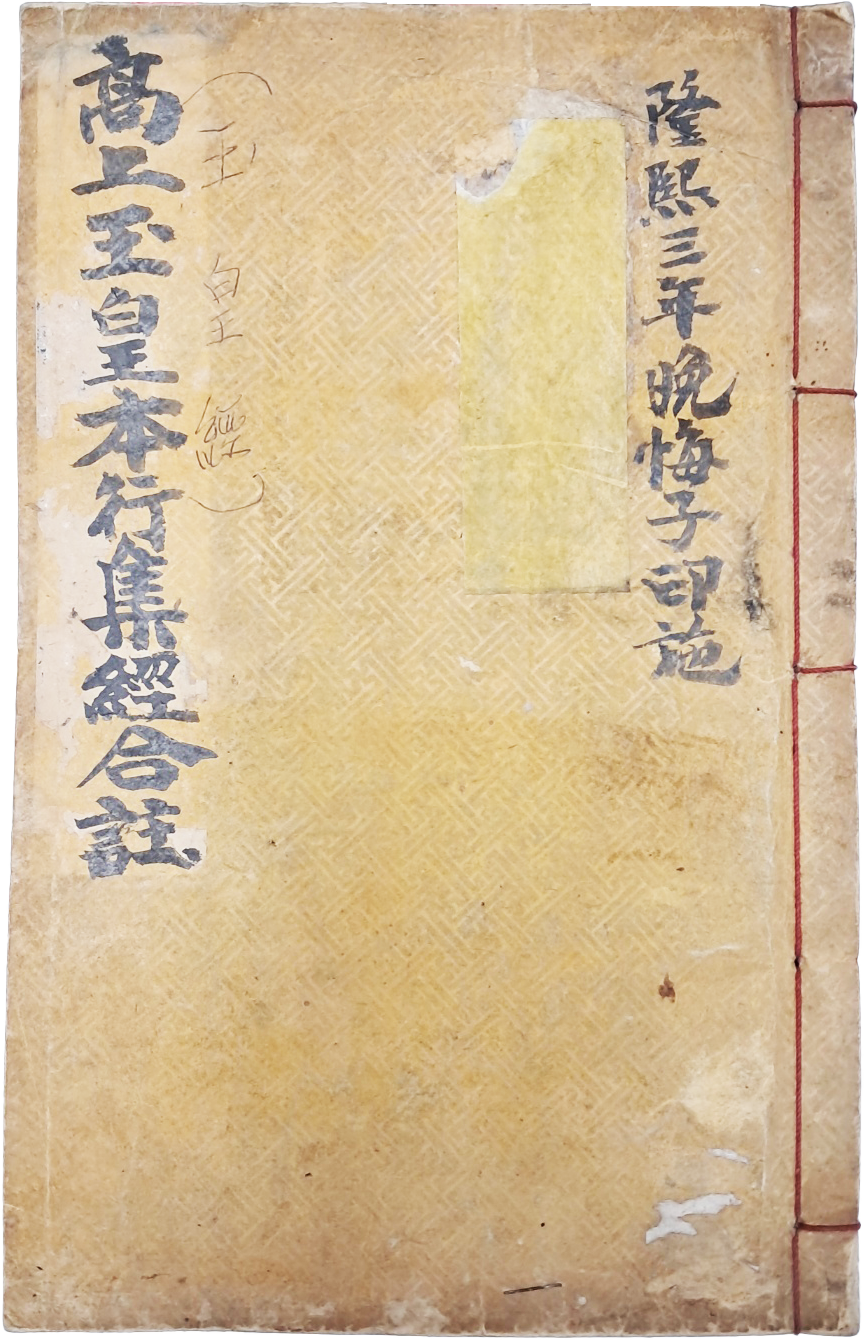 隆熙三年晚悔子印施
（玉皇經）
高上玉皇本行集經合註